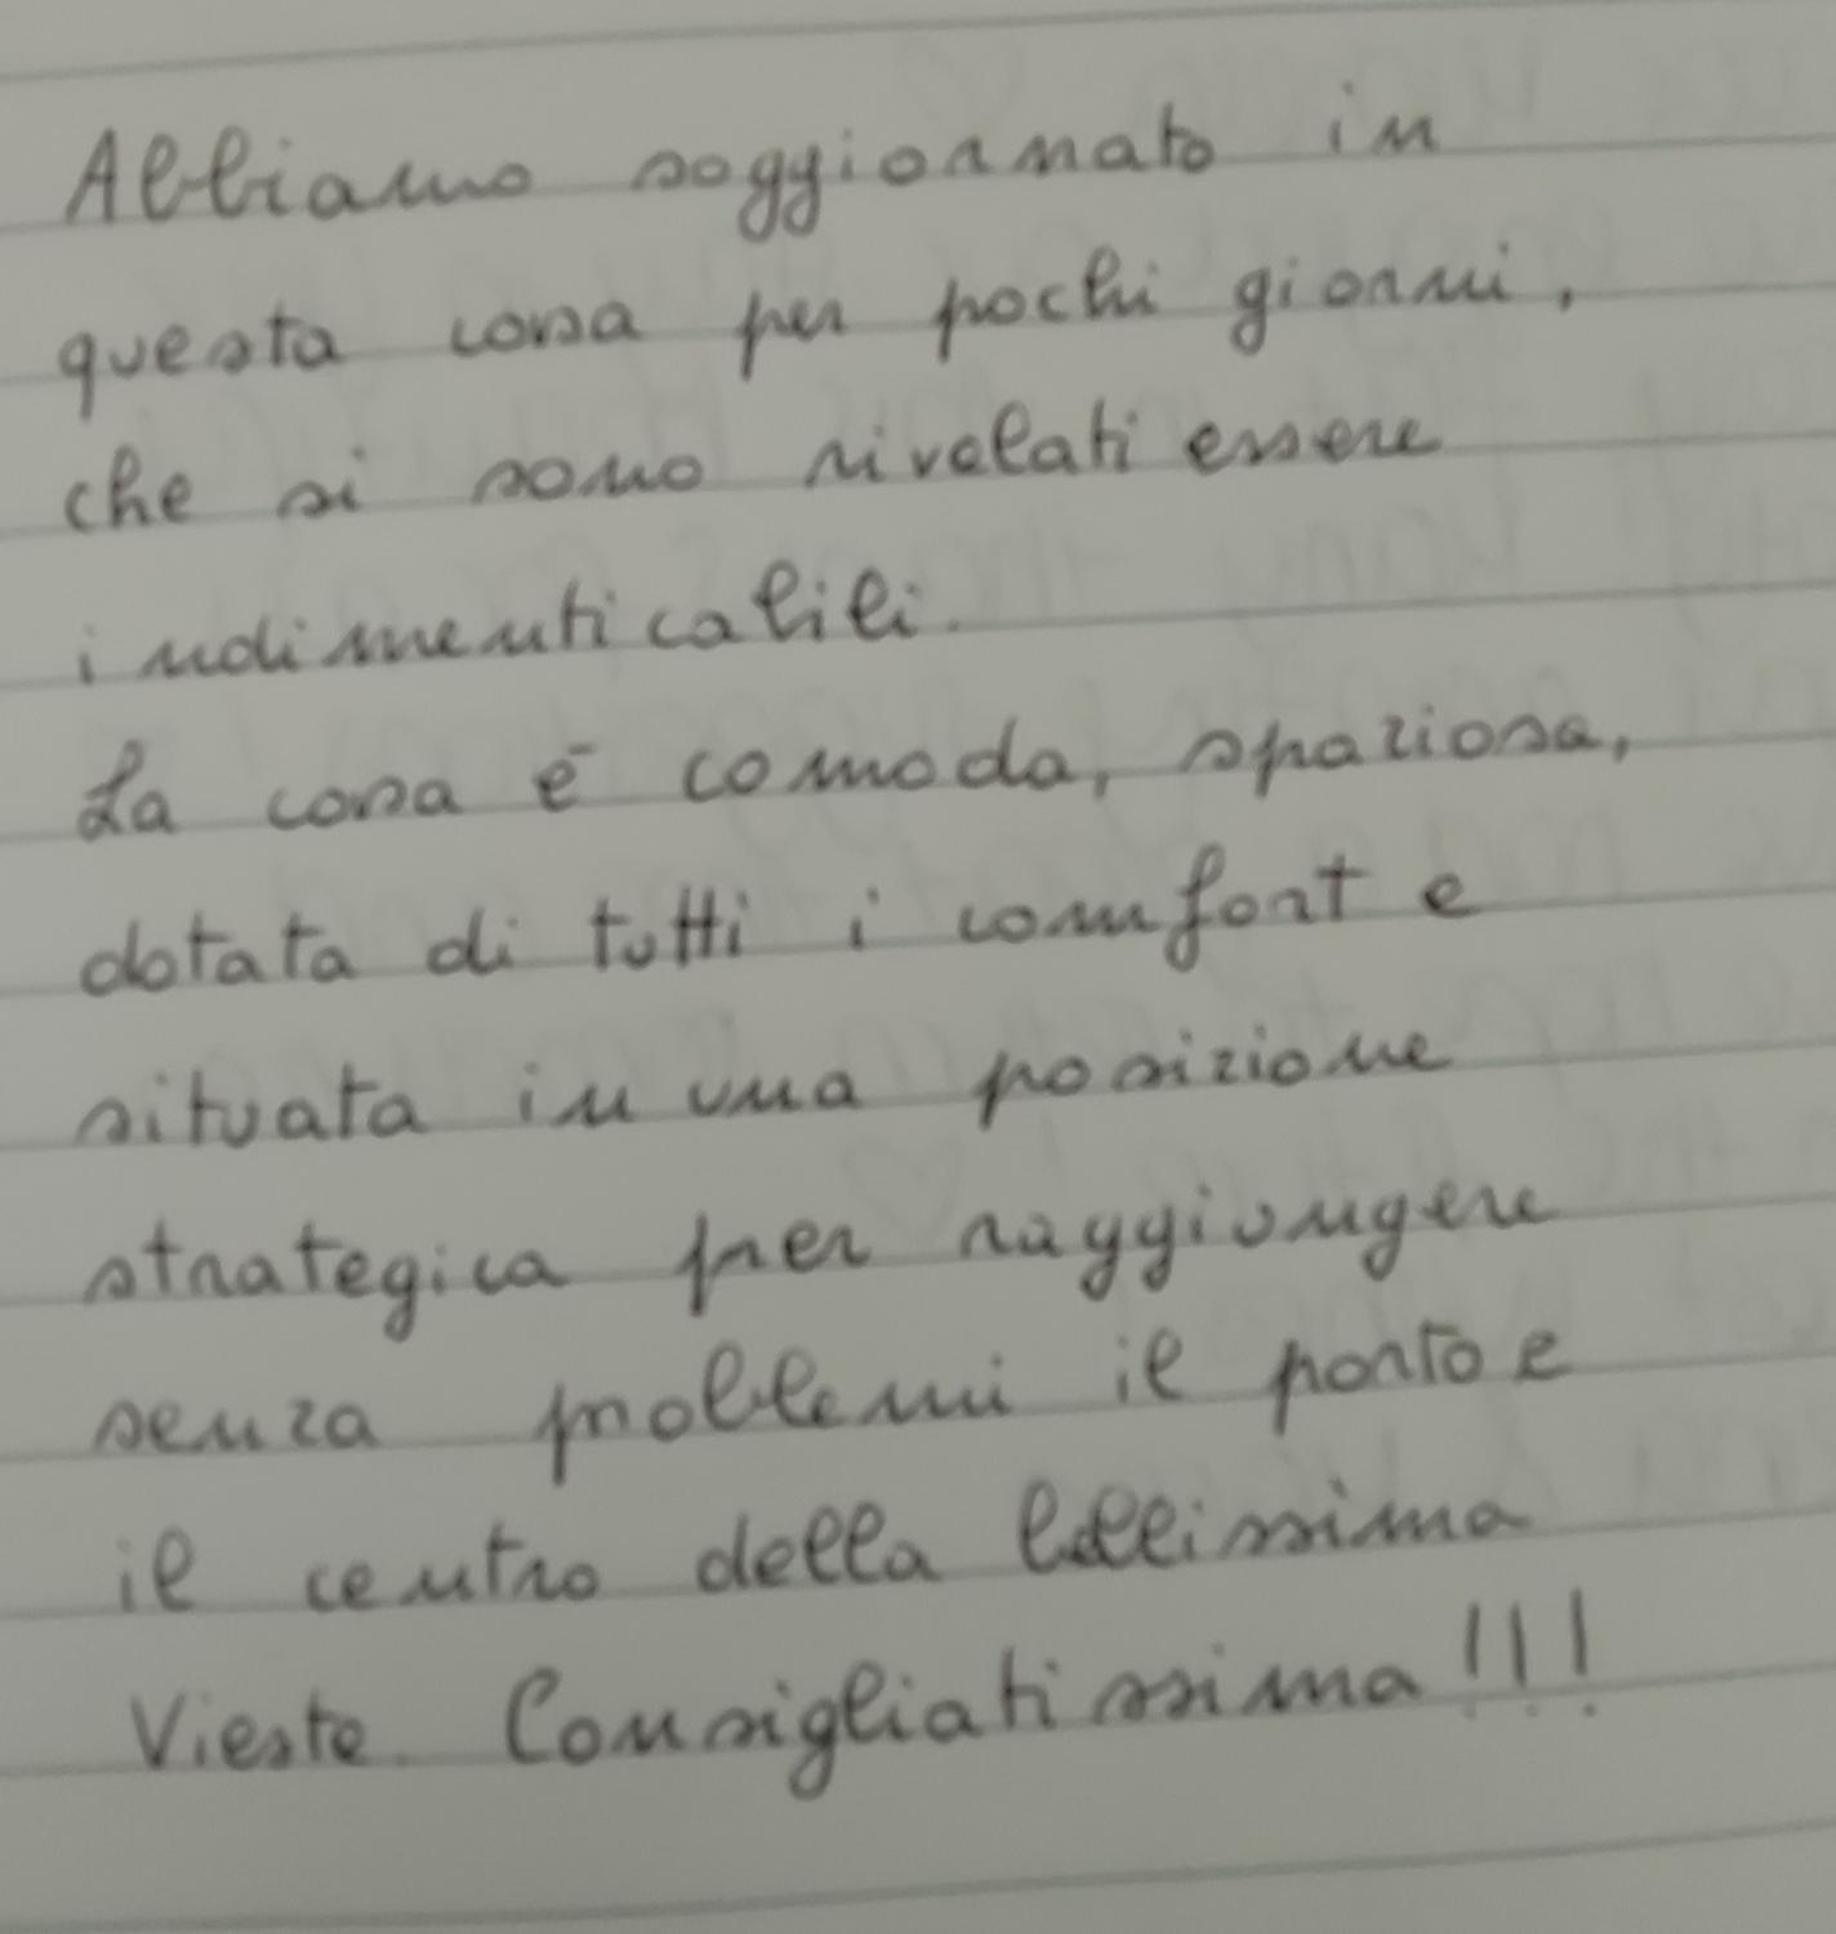 Abbiamo soggiornato in
questa casa per pochi giorni,
che si sono rivelati essere
indimenticabili.
La casa è comoda, spaziosa,
dotata di tutti i comfort e
situata in una posizione
strategica per raggiungere
senza problemi il porto e
il centro della bellissima
Vieste. Consigliatissima!!!